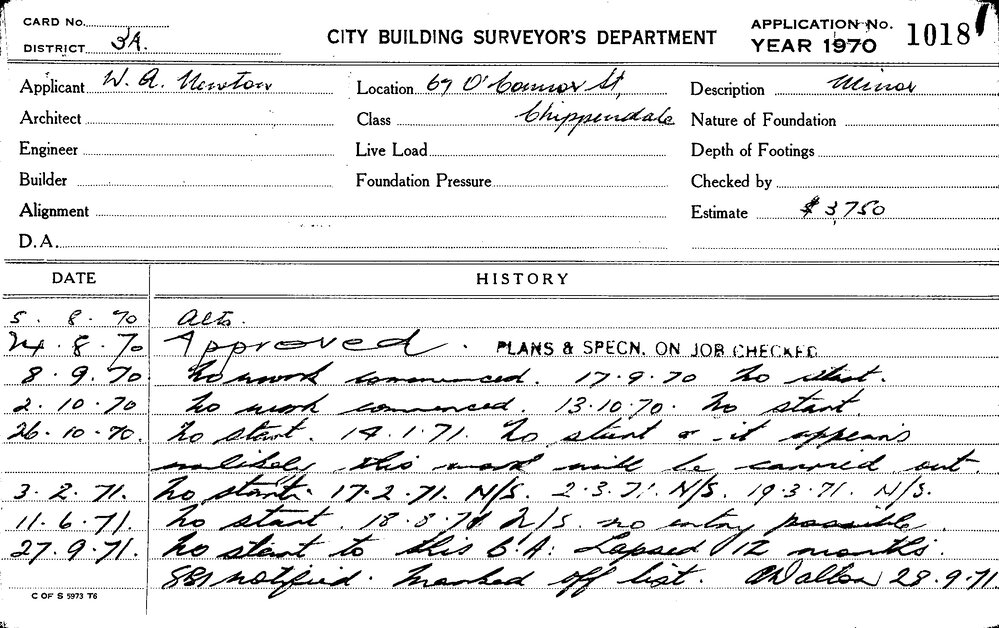 CARD No.
DISTRICT 3A.
CITY BUILDING SURVEYOR'S DEPARTMENT
APPLICATION No.
YEAR 1970
1018
Applicant W. A. Newton
Location 67 O'Connor St,
Description Minor
Architect
Class Chippendale
Nature of Foundation
Engineer
Live Load
Depth of Footings
Builder
Foundation Pressure
Checked by
Alignment
Estimate $ 3,750
D.A.
DATE HISTORY
5. 8. 70 Alts.
24. 8. 70 Approved. PLANS & SPECN. ON JOB CHECKED
8. 9. 70 No work commenced. 17.9.70 No start.
2. 10. 70 No work commenced. 13.10.70. No start.
26. 10. 70. No start. 14.1.71. No start & it appears
unlikely this work will be carried out.
3. 2. 71. No start. 17.2.71. N/S. 2.3.71. N/S. 19.3.71. N/S.
11. 6. 71. No start. 18.8.71 N/S. no entry possible.
27. 9. 71. No start to this B.A. Lapsed 12 months.
notified. Marked off list. 28.9.71
C OF S 5973 T6